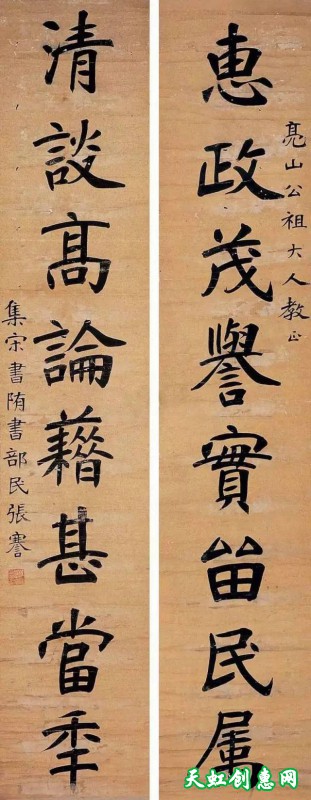 亮山公祖大人教正
惠政茂譽實畄民属
清談髙論藉甚當秊
集宋書陏書部民張謇
天虹创惠网